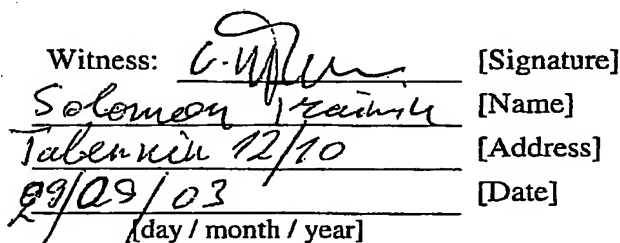 Witness: [Signature]
Solomon Trainin [Name]
Tabenkin 12/10 [Address]
29/09/03 [Date]
[day / month / year]